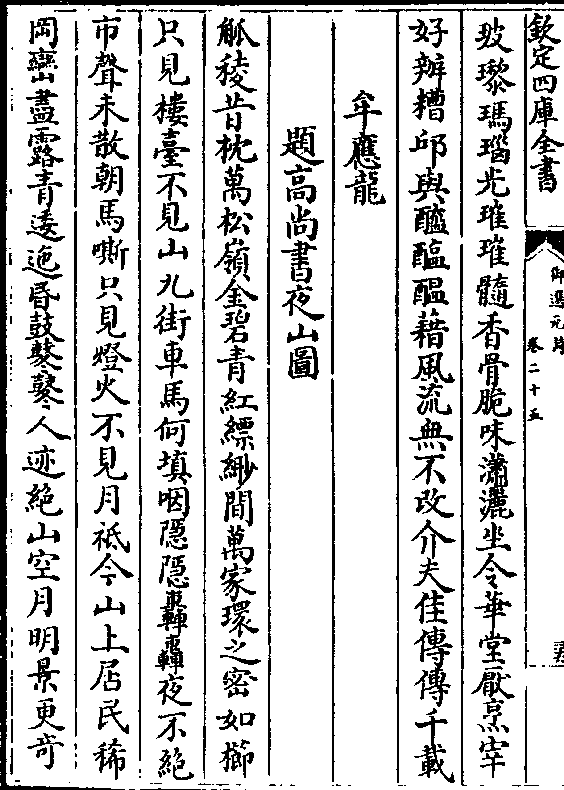 欽定四庫全書
御選元詩
卷二十五
玻瓈瑪瑙光璀璀髓香骨脆味瀟灑坐令華堂厭烹宰
好辦糟邱與醯醢醞藉風流無不改介夫佳傳傳千載
牟應龍
題高尚書夜山圖
觚稜昔枕萬松嶺金碧青紅縹緲間萬家環之密如櫛
只見樓臺不見山九街車馬何填咽隱隱轟轟夜不絶
市聲未散朝馬嘶只見燈火不見月祗今山上居民稀
岡巒盡露青逶迤昏鼓鼕鼕人迹絶山空月明景更奇